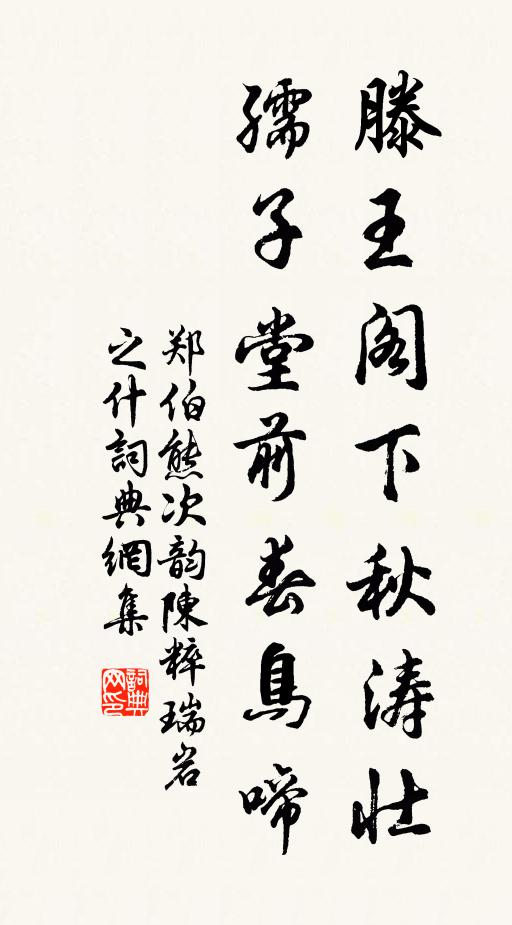 滕王阁下秋涛壮
孺子堂前春鳥啼
郑伯熊次韵陳粹瑞岩
之什詞典網集
詞典
网印